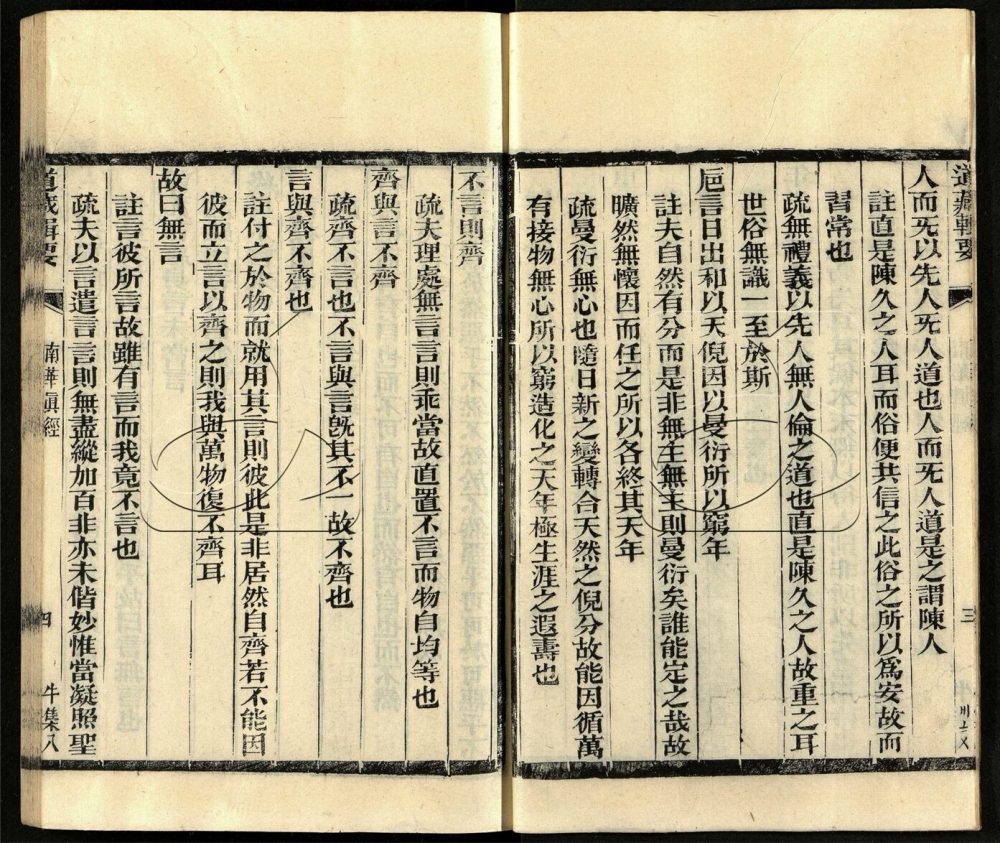 道藏輯要
三
人而旡以先人旡人道也人而旡人道是之謂陳人
註直是陳久之人耳而俗便共信之此俗之所以爲安故而
習常也
疏無禮義以先人無人倫之道也直是陳久之人故重之耳
世俗無識一至於斯
巵言日出和以天倪因以曼衍所以窮年
註夫自然有分而是非無主無主則曼衍矣誰能定之哉故
曠然無懷因而任之所以各終其天年
疏曼衍無心也隨日新之變轉合天然之倪分故能因循萬
有接物無心所以窮造化之天年極生涯之遐壽也
不言則齊
疏夫理處無言言則乖當故直置不言而物自均等也
齊與言不齊
疏齊不言也不言與言旣其不一故不齊也
言與齊不齊也
註付之於物而就用其言則彼此是非居然自齊若不能因
彼而立言以齊之則我與萬物復不齊耳
故曰無言
註言彼所言故雖有言而我竟不言也
疏夫以言遣言言則無盡縱加百非亦未偕妙惟當凝照聖
道藏輯要
南華眞經
四
牛集八